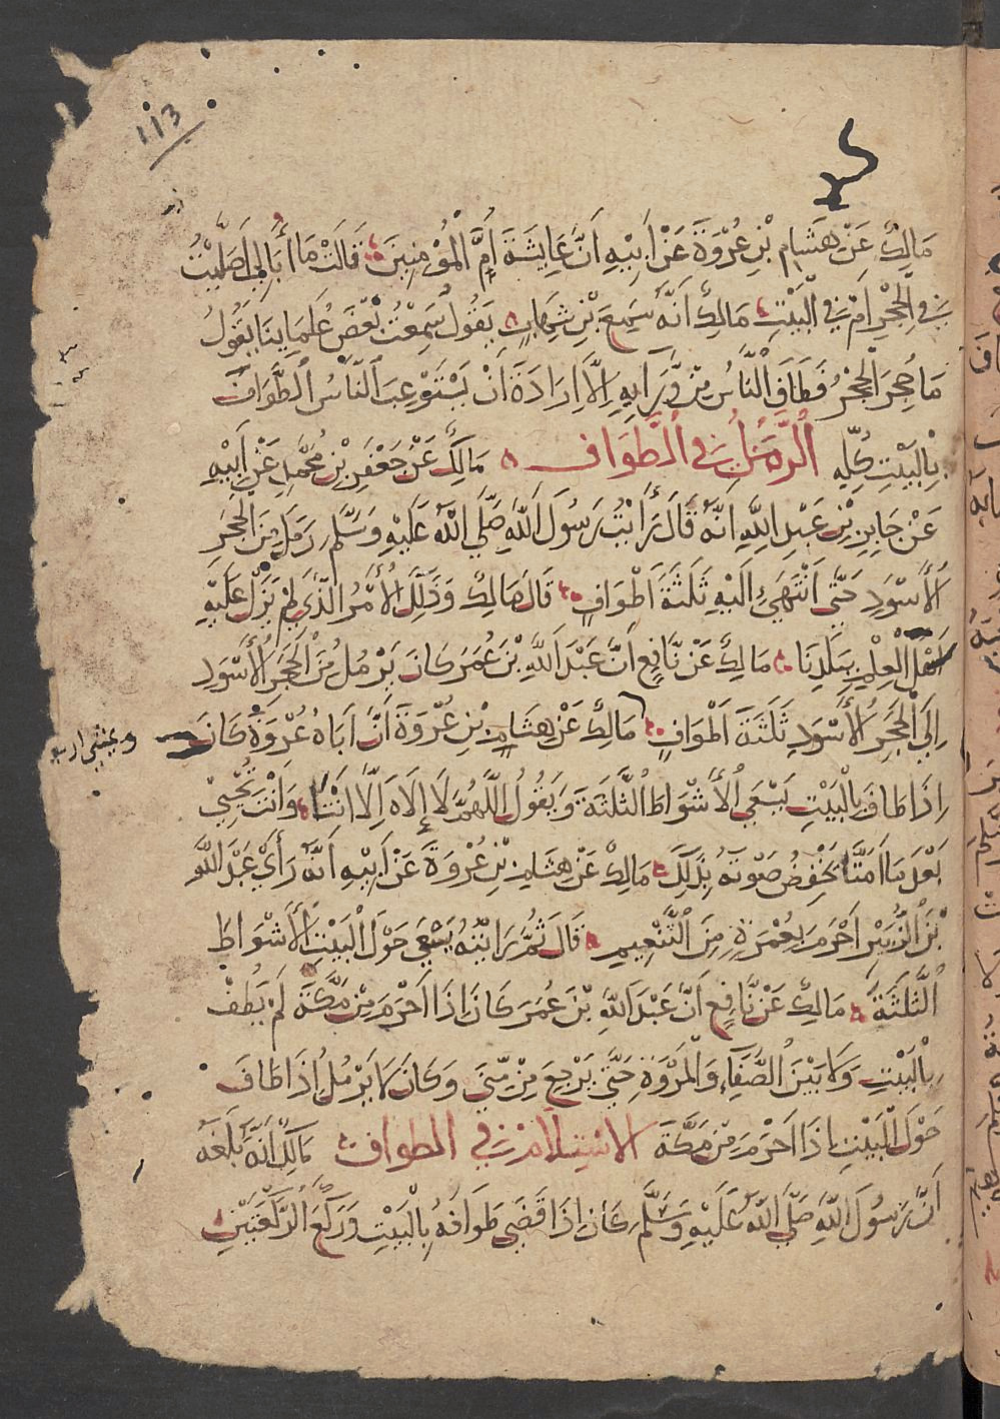 113
مَالِكٌ عَنْ هِشَامِ بْنِ عُرْوَةَ عَنْ اَبِيْهِ اَنَّ عَايِشَةَ اُمَّ الْمُؤْمِنِينَ قَالَتْ مَا أُبَالِي اَصَلَّيْتُ
فِي الْحِجْرِ اَمْ فِي الْبَيْتِ مَالِكٌ اَنَّهُ سَمِعَ بْنَ شِهَابٍ يَقُولُ سَمِعْتُ بَعْضَ عُلَمَايِنَا يَقُولُ
مَا حُجِرَ الْحِجْرُ فَطَافَ النَّاسُ مِنْ وَّرَايِهِ اِلَّا اِرَادَةَ اَنْ يَسْتَوْعِبَ النَّاسُ الطَّوَافَ
بِالْبَيْتِ كُلِّهِ الرَّمَلُ فِي الطَّوَاف مَالِكٌ عَنْ جَعْفَرِ بْنِ مُحَمَّدٍ عَنْ اَبِيْهِ
عَنْ جَابِرِ بْنِ عَبْدِ اللَّهِ اَنَّهُ قَالَ رَأَيْتُ رَسُولَ اللَّهِ صَلَّى اللَّهُ عَلَيْهِ وَسَلَّمَ رَمَلَ مِنَ الْحَجَرِ
الْأَسْوَدِ حَتَّى انْتَهَى اِلَيْهِ ثَلَثَةَ اَطْوَافٍ قَالَ مَالِكٌ وَذَلِكَ الْأَمْرُ الَّذِي لَمْ يَزَلْ عَلَيْهِ
اَهْلُ الْعِلْمِ بِبَلَدِنَا مَالِكٌ عَنْ نَّافِعٍ اَنَّ عَبْدَ اللَّهِ بْنَ عُمَرَ كَانَ يَرْمُلُ مِنَ الْحَجَرِ الْأَسْوَدِ
اِلَى الْحَجَرِ الْأَسْوَدِ ثَلَثَةَ اَطْوَافٍ مَالِكٌ عَنْ هِشَامِ بْنِ عُرْوَةَ اَنَّ اَبَاهُ عُرْوَةَ كَانَ
ويمشي اربع
اِذَا طَافَ بِالْبَيْتِ يَسْعَى الْأَشْوَاطَ الثَّلَثَةَ وَيَقُولُ اللَّهُمَّ لَا إِلَاهَ اِلَّا اَنْتَا وَاَنْتَ تُحْيِي
بَعْدَ مَا اَمَتَّا يَخْفِضُ صَوْتَهُ بِذَلِكَ مَالِكٌ عَنْ هِشَامِ بْنِ عُرْوَةَ عَنْ اَبِيْهِ اَنَّهُ رَأَى عَبْدَ اللَّهِ
بْنَ الزُّبَيْرِ اَحْرَمَ بِعُمْرَةٍ مِنَ التَّنْعِيمِ قَالَ ثُمَّ رَايْتُهُ يَسْعَى حَوْلَ الْبَيْتِ الْأَشْوَاطَ
الثَّلَثَةَ مَالِكٌ عَنْ نَّافِعٍ اَنَّ عَبْدَ اللَّهِ بْنَ عُمَرَ كَانَ اِذَا اَحْرَمَ مِنْ مَّكَّةَ لَمْ يَطُفْ
بِالْبَيْتِ وَلَا بَيْنَ الصَّفَاءِ وَالْمَرْوَةِ حَتَّى يَرْجِعَ مِنْ مِّنَى وَكَانَ لَا يَرْمُلُ اِذَا طَافَ
حَوْلَ الْبَيْتِ اِذَا اَحْرَمَ مِنْ مَكَّةَ الاسْتِلَامُ فِي الطواف مَالِكٌ اَنَّهُ بَلَغَهُ
اَنَّ رَسُولَ اللَّهِ صَلَّى اللَّهُ عَلَيْهِ وَسَلَّمَ كَانَ اِذَا قَضَى طَوَافَهُ بِالْبَيْتِ وَرَكَعَ الرَّكْعَتَيْنِ